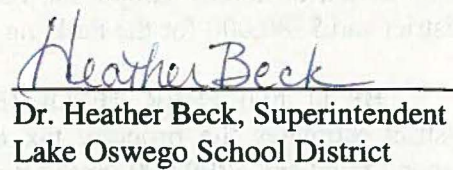 Heather Beck
Dr. Heather Beck, Superintendent
Lake Oswego School District